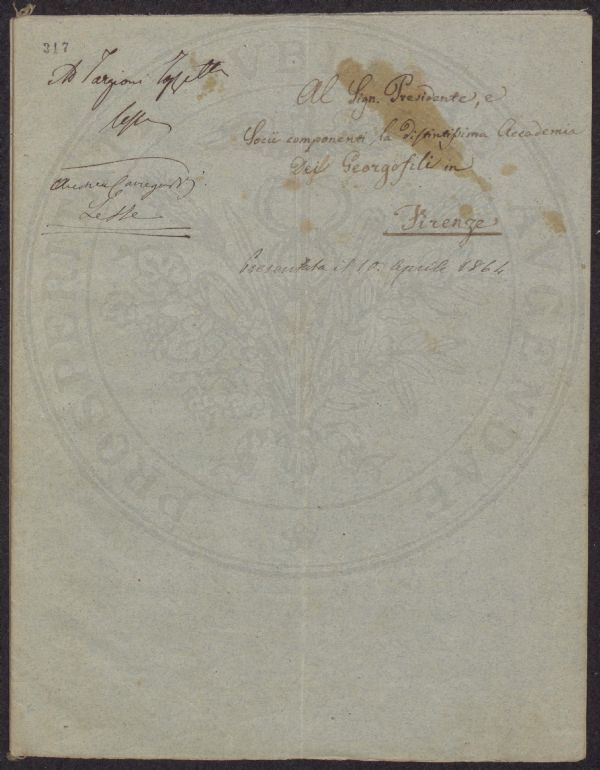 317
Ad Targioni Tozzetti
lesse
Al Sign. Presidente, e
Socii componenti la distintissima Accademia
Dei Georgofili in
Firenze
Lesse
Presentata il 10. Aprile 1864
PROSPERI AUGENDAE